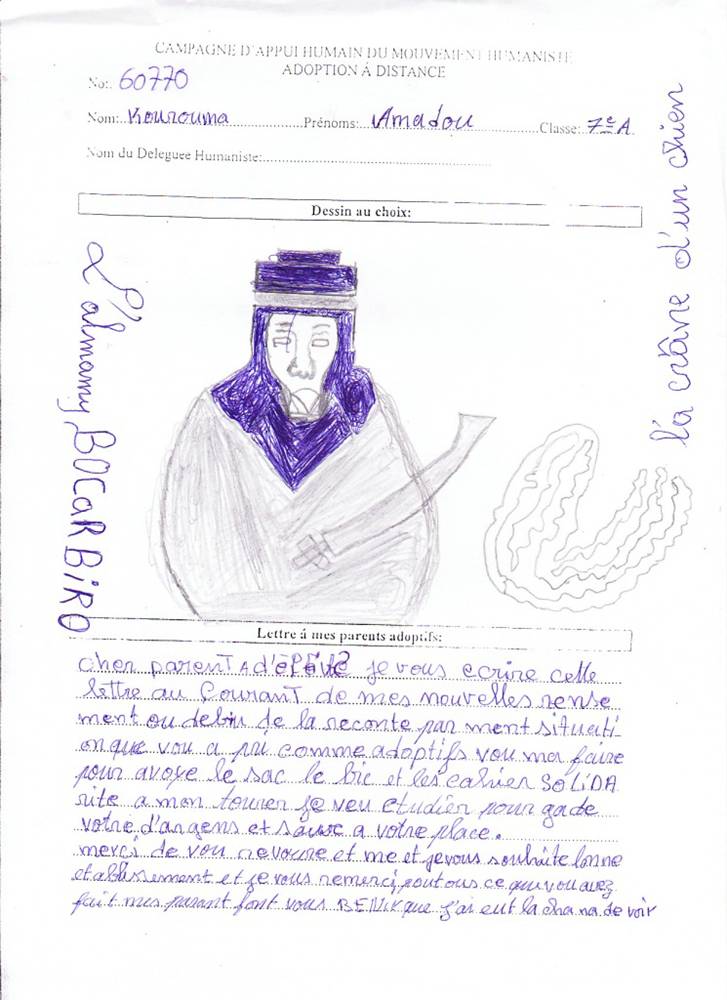 CAMPAGNE D'APPUI HUMAIN DU MOUVEMENT HUMANISTE
ADOPTION Á DISTANCE
No: 60770
Nom: Kourouma Prénoms: Amadou Classe: 7e A
Nom du Deleguee Humaniste:
Dessin au choix:
L'almamy BOCAR BiRO
la crâne d'un chien
Lettre á mes parents adoptifs:
cher parenT je vous ecrire celle
lettre au CouranT de mes nouvelles rense
ment ou de la reconte par ment situati
on que vou a pri comme adoptifs vou ma faire
pour avoye le sac le bic et les cahier SOLiDA
rite a mon tourer je veu etudier pour gade
votre d'angens et sauve a votre place.
merci de vou et me et je vous souhaite bonne
etablissement et je vous remerci pour tous ce que vou avez
fait mes parant font vous BENir que j'ai eut la de voir